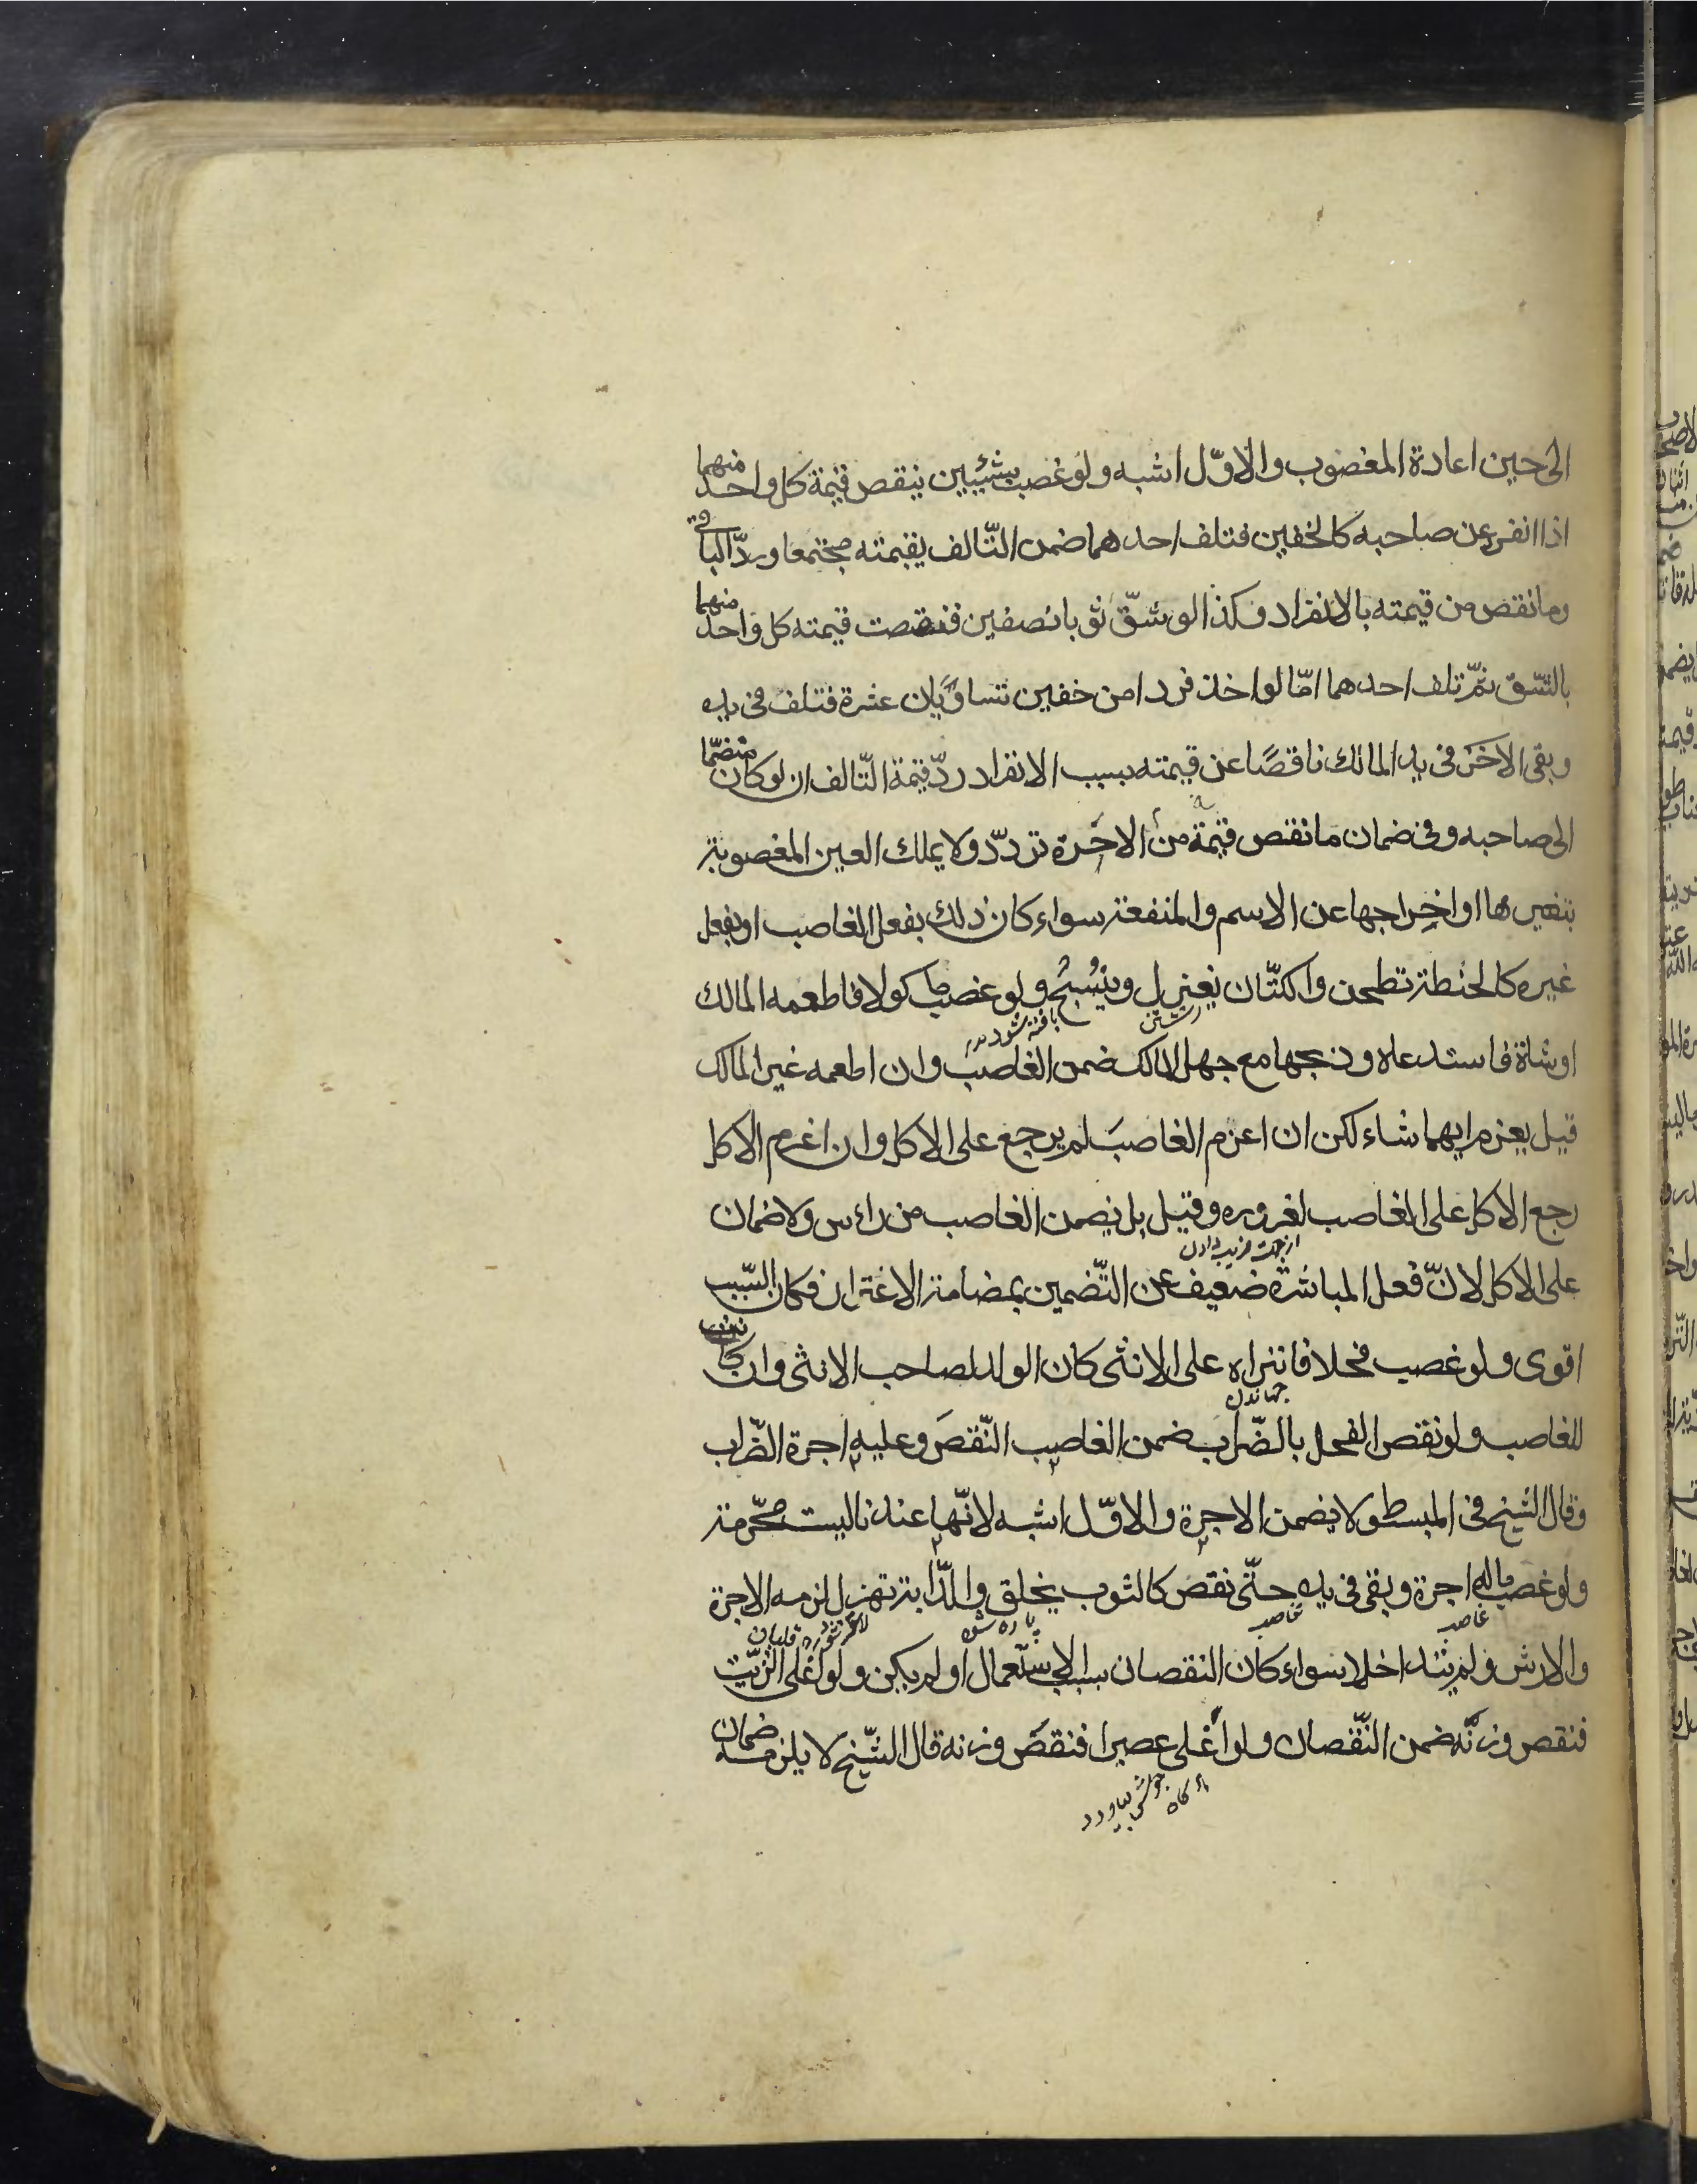 الى حين اعادة المغصوب والاوّل اشبه ولو غصب شيئين ينقص قيمة كل واحد منهما
اذا انفرد عن صاحبه كالخفين فتلف احدهما ضمن التّالف بقيمته مجتمعا وردّ الباقى
وما نقص من قيمته بالانفراد وكذا لو شقّ ثوبا نصفين فنقصت قيمته كل واحد منهما
بالشّق ثمّ تلف احدهما امّا لو اخذ فردا من خفين تتساويان عشرة فتلف فى يده
وبقى الاخر فى يد المالك ناقصًا عن قيمته بسبب الانفراد ردّ قيمة التّالف ان لو كان منضمّا
الى صاحبه وفى ضمان ما نقص قيمة من الاخرة تردّد ولا يملك العين المغصوبة
بتغيرها او اخراجها عن الاسم والمنفعة سواء كان ذلك بفعل الغاصب او بفعل
غيره كالحنطة تطحن والكتّان يغزل وينسج ولو غصب ماكولا فاطعمه المالك
رشتن بافته شود
او شاة فاستدعاه وذبحها مع جهل المالك ضمن الغاصب وان اطعمه غير المالك
قيل يغرم ايهما شاء لكن ان اغرم الغاصبَ لم يرجع على الاكل وان اغرم الاكل
رجع الاكل على الغاصب لغروره وقيل بل يضمن الغاصب من راس ولا ضمان
از جهت فريب دادن
على الاكل لانّ فعل المباشرة ضعيف عن التّضمين بمضامة الاغترار فكان السّبب
اقوى ولو غصب فحلا فانزاه على الانثى كان الولد لصاحب الانثى وان كانت
جهاندن
للغاصب ولو نقص الفحل بالضّراب ضمن الغاصب النّقص وعليه اجرة الضّراب
وقال الشيخ فى المبسوط لا يضمن الاجرة والاوّل اشبه لانّها عندنا ليست محّرمة
ولو غصب ماله اجرة وبقى فى يده حتّى نقص كالثوب يخلق والدّابة تهزل لزمه الاجرة
غاصب غاصب پاره شود لاغر شود
والارش ولم يتداخلا سواء كان النقصان بسبب الاستعمال او لم يكن ولو اغلى الزّيت
فنقص وزنّه ضمن النّقصان ولو اغلى عصيرا فنقص وزنه قال الشّيخ لا يلزمه ضمان